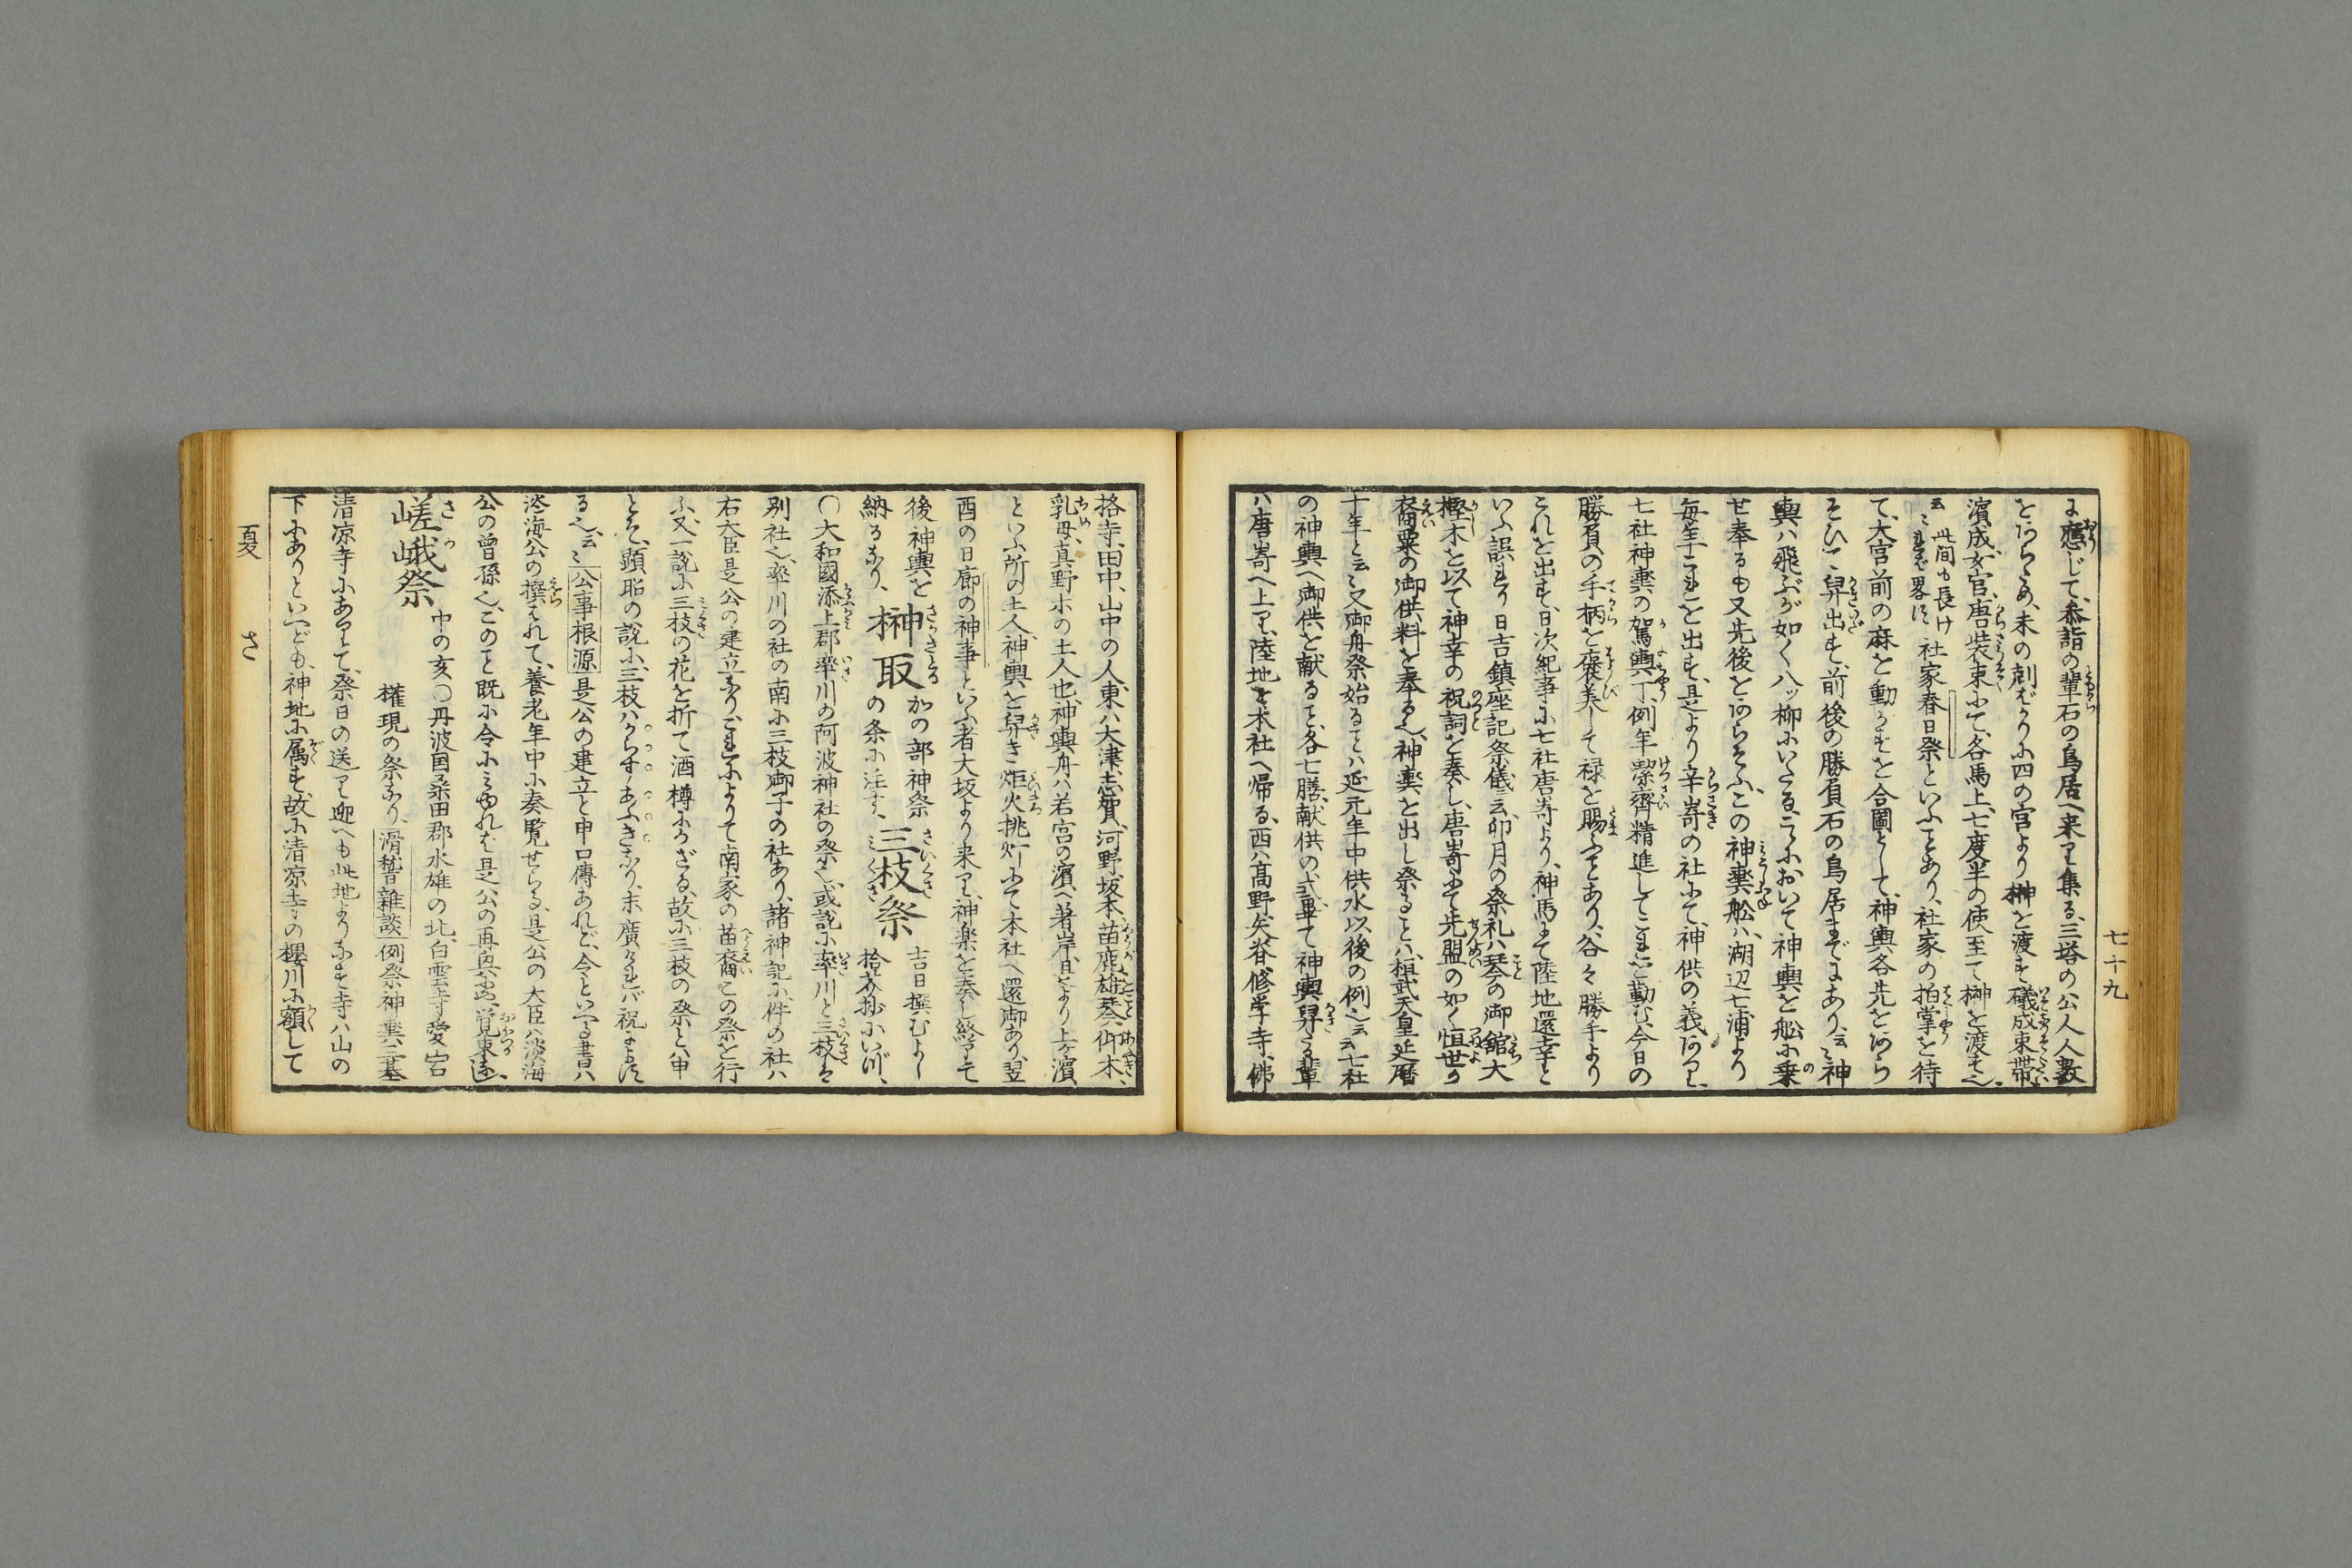 七十九
に應じて、参詣の輩石の鳥居へ来り集る、三塔の公人人數
をあらため、未の刻ばかりに四の宮より榊を渡す、礒成束帶、
濱成女官唐裝束にて、各馬上、七度半の使至て榊を渡す也、
云〻此間も長け
れば畧す 社家春日祭といふことあり、社家の拍掌を待
て、大宮前の麻を動かすを合圖として、神輿各先をあら
そひて舁出す、前後の勝負石の鳥居までにあり、云〻神
輿ハ飛ぶが如く、八ッ柳にいたる、こゝにおいて神輿を舩に乗
せ奉るも又先後をあらそふ、この神輿舩ハ、湖辺七浦より
毎年これを出す、是より辛崎の社にて、神供の義あり、
七社神輿の駕輿丁、例年潔齊精進してこれを勤む、今日の
勝負の手柄を褒美して禄を賜ふことあり、各々勝手より
これを出す、日次紀事に七社唐崎より、神馬にて陸地還幸と
いふ誤れり 日吉鎮座記祭儀云、卯月の祭礼ハ琴の御舘大
樫木を以て神幸の祝詞を奏し、唐崎にて先盟の如く恒世が
裔粟の御供料を奉る也、神輿を出し祭ること、ハ桓武天皇延暦
十年と云〻又御舟祭始ることハ延元年中供水以後の例也云云七社
の神輿へ御供を献ること、各七膳、献供の式畢て神輿舁たる輩
ハ唐崎へ上り、陸地を本社へ帰る、西ハ髙野、矢脊、修学寺、佛
格寺、田中、山中の人、東ハ大津、志賀、河野、坂本、苗鹿、雄琴、仰木、
乳母、真野ホの土人也、神輿舟ハ若宮の濱へ著岸、是より上ヶ濱
といふ所の土人、神輿を舁き炬火挑灯にて本社へ還御あり、翌
酉の日廊の神事といふ者大坂より来り、神楽を奏し終りて
後神輿を
納るなり、
榊取 かの部神祭
の条に注す、
三枝祭 吉日撰むよし
拾芥抄にいづ、
〇大和國添上郡率川の阿波神社の祭也、或說に率川と三枝は
別社也、率川の社の南に三枝御子の社あり、諸神記に、件の社ハ
右大臣是公の建立なり、これによりて南家の苗裔この祭を行
ふ、又一說に三枝の花を折て酒樽にかざる、故に三枝の祭と、ハ申
とぞ、顕昭の說に、三枝ハからすあふぎなり、末廣ければ祝によす
る也云〻公事根源是公の建立と申口傳あれど、令といへる書ハ
淡海公の撰ばれて、養老年中に奏覧せらる、是公の大臣ハ淡海
公の曽孫也、このこと既に令にみゆれば、是公の再興歟、覚束なし、
嵯峨祭 中の亥〇丹波国桑田郡水雄の北、白雲寺愛宕
権現の祭なり、滑稽雜談例祭神輿六基
清凉寺にありて、祭日の送り迎へも此地よりなす寺ハ山の
下にありといへども、神地に属す、故に清凉寺の櫻川に額して
夏
さ